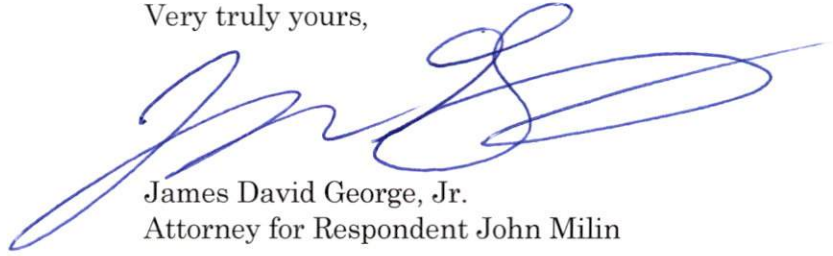 Very truly yours,
James David George, Jr.
Attorney for Respondent John Milin